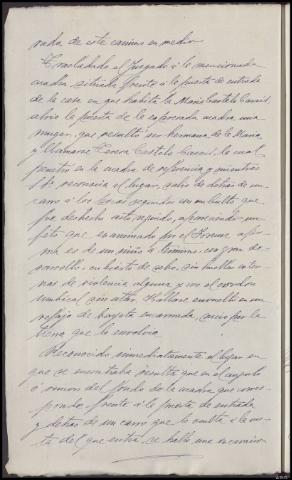 rada de este camino en medio
Trasladado el Juzgado á la mencionada
cuadra situada frente á la puerta de entrada
de la casa en que habita la María Castelo
abrió la puerta de la referida cuadra una
mujer, que resultó ser hermana de la María
y llamarse Teresa Castelo la cual
penetró en la cuadra de referencia y mientras
S.S. reconocía el lugar, salió de detrás de un
carro á los pocos segundos con un bulto que
fue deshecho acto seguido, apareciendo un
feto que examinado por el Forense afir-
ma es de un niño á término, con gran de-
sarrollo, cubierto de sebo, sin huellas exter-
nas de violencia alguna y con el cordón
umbilical sin atar. Hállase envuelto en un
refajo de bayeta encarnada, sucio por la
tierra que lo envolvía.
Reconocido inmediatamente el lugar en
que se encontraba resulta que en el ángulo
ó rincón del fondo de la cuadra que corres-
ponde frente á la puerta de entrada
y detrás de un carro que lo oculta á la vis-
ta del que entra, se halla una excavación